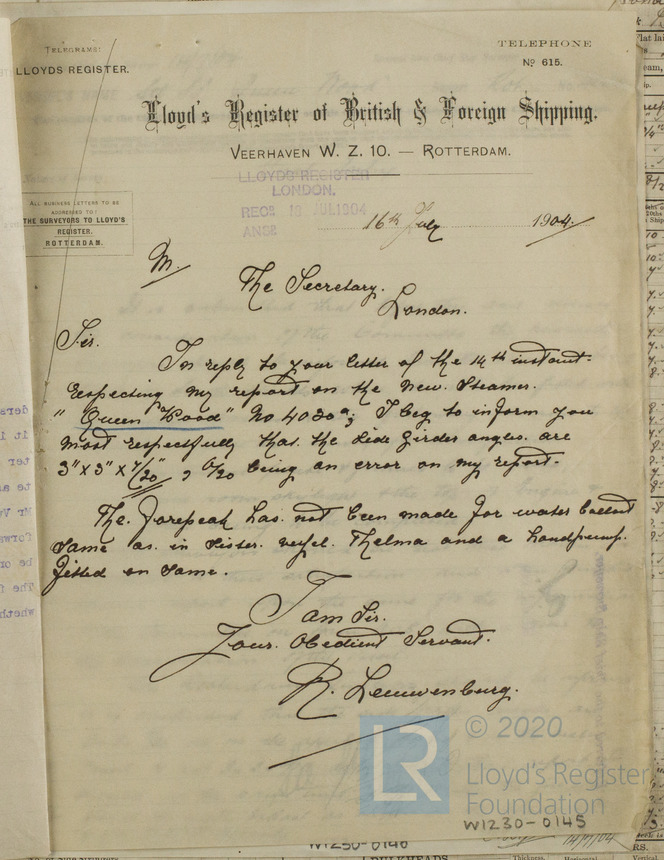 TELEGRAMS:
LLOYDS REGISTER.
TELEPHONE
No 615.
Lloyd's Register of British & Foreign Shipping.
VEERHAVEN W. Z. 10. — ROTTERDAM.
LLOYDS REGISTER
LONDON.
RECD 18 JUL 1904
ANSD
ALL BUSINESS LETTERS TO BE
ADDRESSED TO:
THE SURVEYORS TO LLOYD'S
REGISTER.
ROTTERDAM.
16th July 1904.
M.
The Secretary.
London.
Sir.
In reply to your letter of the 14th instant.
respecting my report on the New. Steamer.
"Queen Wood" No 4020a; I beg to inform you
most respectfully that. the side girder angles. are
3" x 3" x 7/20", 6/20 being an error on my report.
The. forepeak has. not been made for water ballast
same as. in sister. vessel. Thelma and a handpump.
fitted on same.
I am Sir.
Your. Obedient Servant.
R. Leeuwenburg.
© 2020
LR
Lloyd's Register
Foundation
W1230-0145
W1230-0146
14/7/04
BULKHEADS